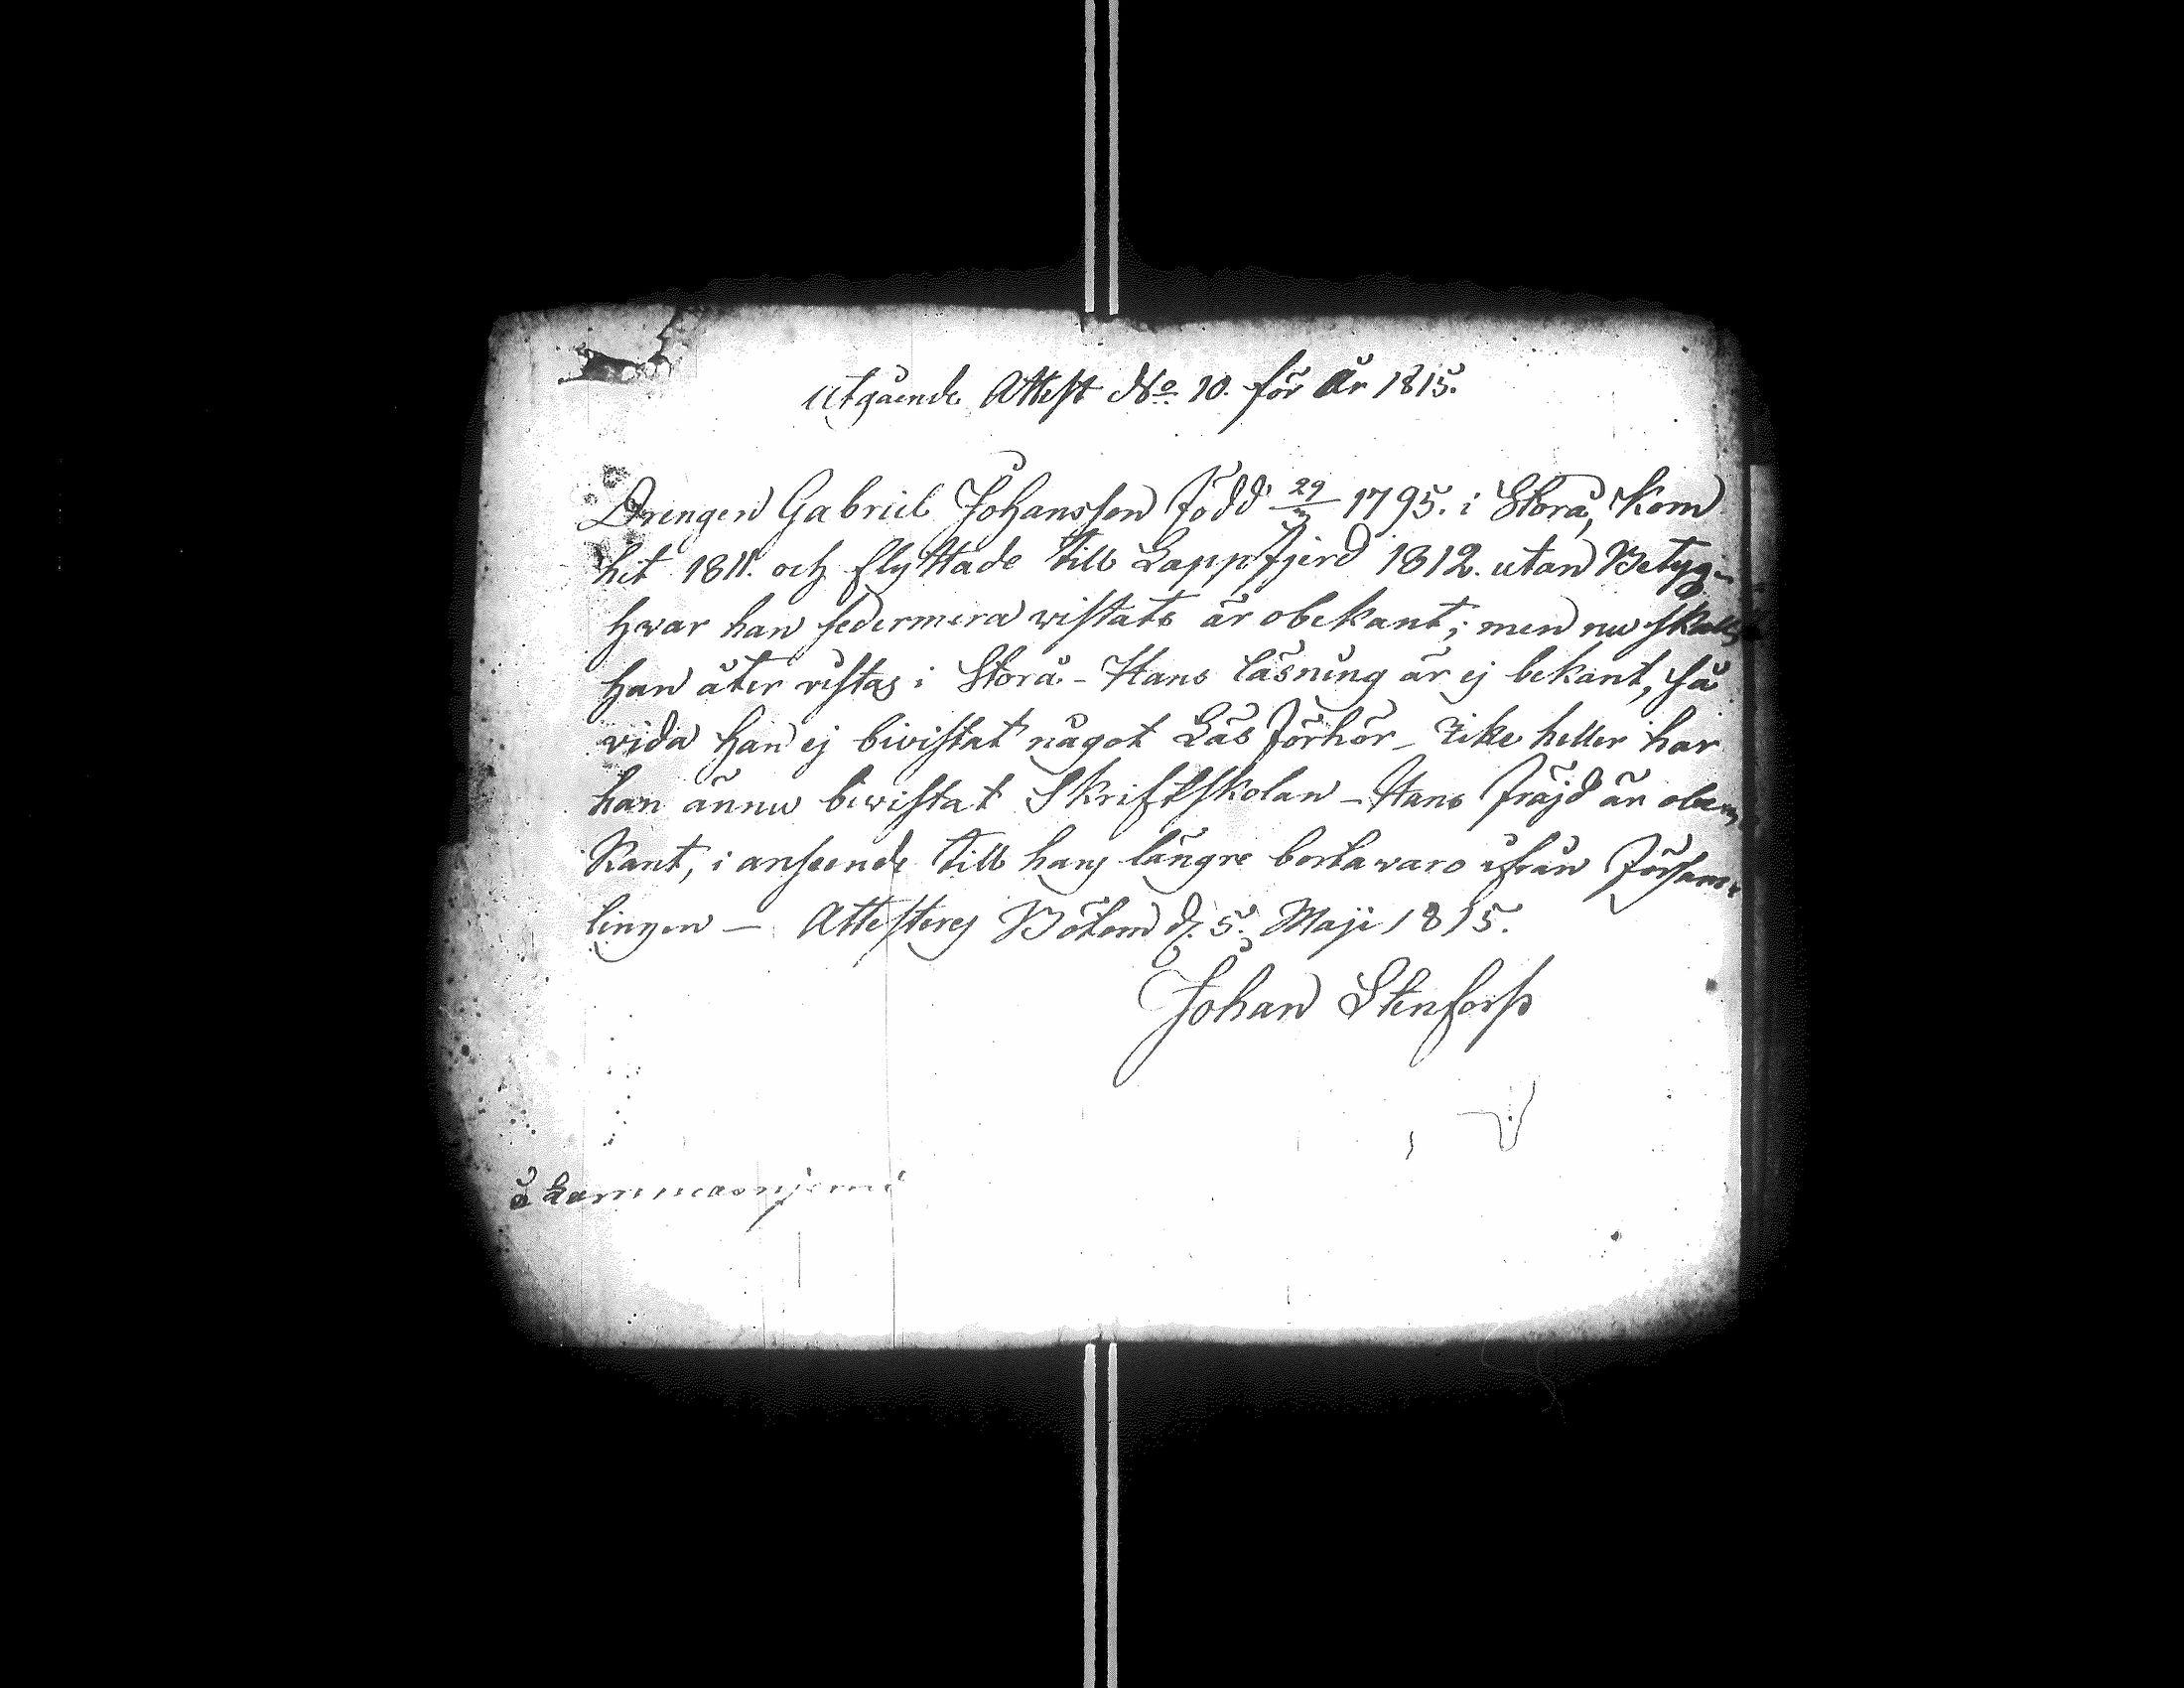 Utgående Attest No 10. för År 1815.
Drengen Gabriel Johansson född 29/3 1795. i Storå, Kom
hit 1811. och flyttade till Lappfjerd 1812. utan Betyg
hvar han sedermera vistats är obekant; men nu skall
han åter vistas i Storå - Hans läsning är ej bekant, så
vida han ej bivistat något Läs förhör - Icke heller har
han ännu bivistat Skriftskolan - Hans fräjd är obe
kant, i anseende till hans längre bortavaro ifrån försam
lingen - Attesteras Bötom d. 5. Maji 1815.
Johan Stenfors
å